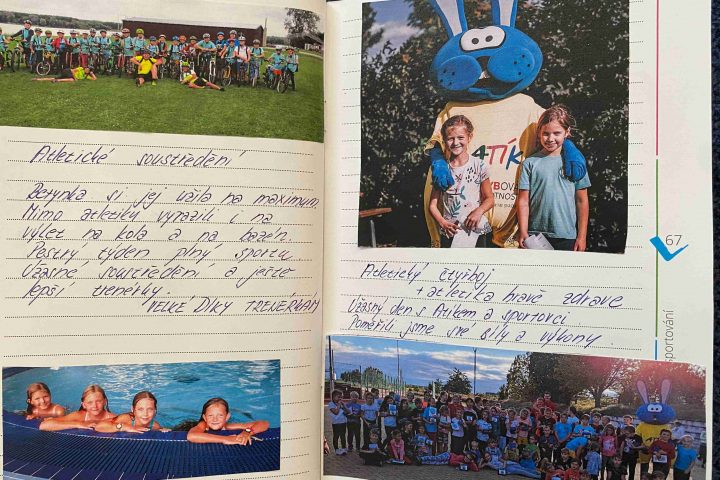 Atletické soustředění
Betynka si jej užila na maximum.
Mimo atletiku vyrazili i na
výlet na kola a na bazén.
Pestrý týden plný sportu.
Úžasné soustředění a ještě
lepší trenérky.
VELKÉ DÍKY TRENÉRKÁM
4TÍK
Atletický čtyřboj
+ atletika hravě zdravě
Úžasný den s Atikem a sportovci
Poměřili jsme své síly a výkony.
67
sportování